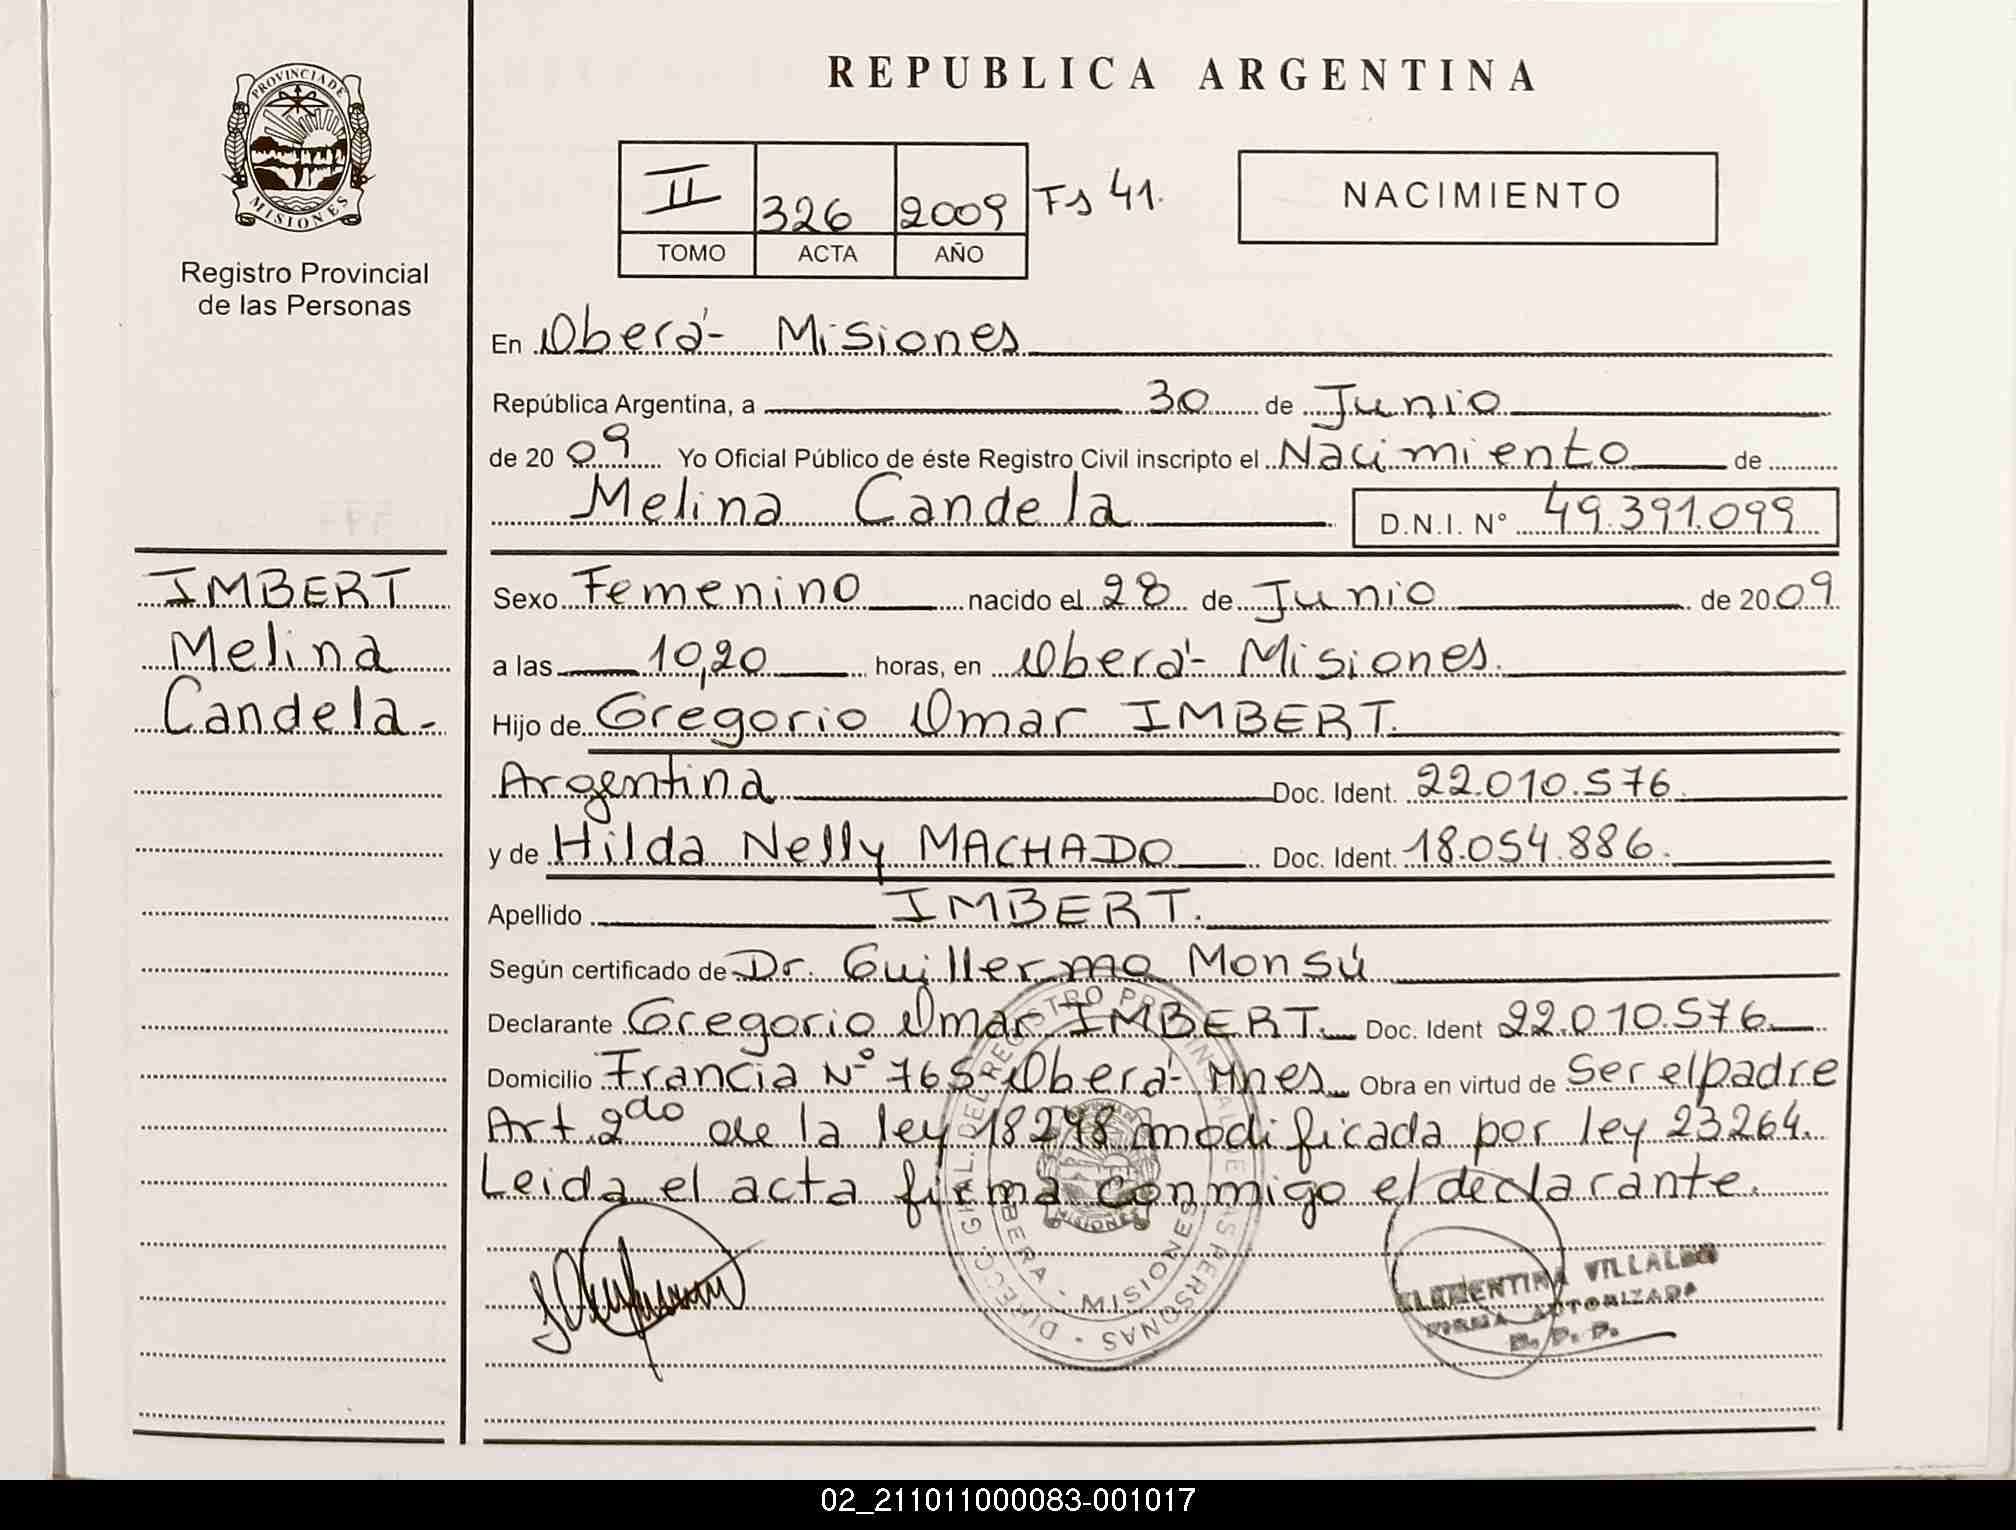 REPUBLICA ARGENTINA
PROVINCIA DE
MISIONES
Registro Provincial
de las Personas
II 326 2009 Fs 41.
TOMO ACTA AÑO
NACIMIENTO
En Oberá- Misiones
República Argentina, a 30 de Junio
de 2009 Yo Oficial Público de éste Registro Civil inscripto el Nacimiento de
Melina Candela D.N.I. N° 49.391.099
IMBERT
Melina
Candela-
Sexo Femenino nacido el 28 de Junio de 2009
a las 10,20 horas, en Oberá- Misiones.
Hijo de Gregorio Omar IMBERT.
Argentina Doc. Ident. 22.010.576.
y de Hilda Nelly MACHADO Doc. Ident. 18.054.886.
Apellido IMBERT.
Según certificado de Dr. Guillermo Monsú
Declarante Gregorio Omar IMBERT. Doc. Ident 22.010.576.
Domicilio Francia N° 765-Oberá- Mnes Obra en virtud de Ser el padre
Art. 2do de la ley 18248 modificada por ley 23264.
Leida el acta firma conmigo el declarante.
DIRECC. GRAL. DEL REGISTRO PROVINCIAL DE LAS PERSONAS
OBERA - MISIONES
MISIONES
CLEMENTINA VILLALBA
FIRMA AUTORIZADA
02_211011000083-001017